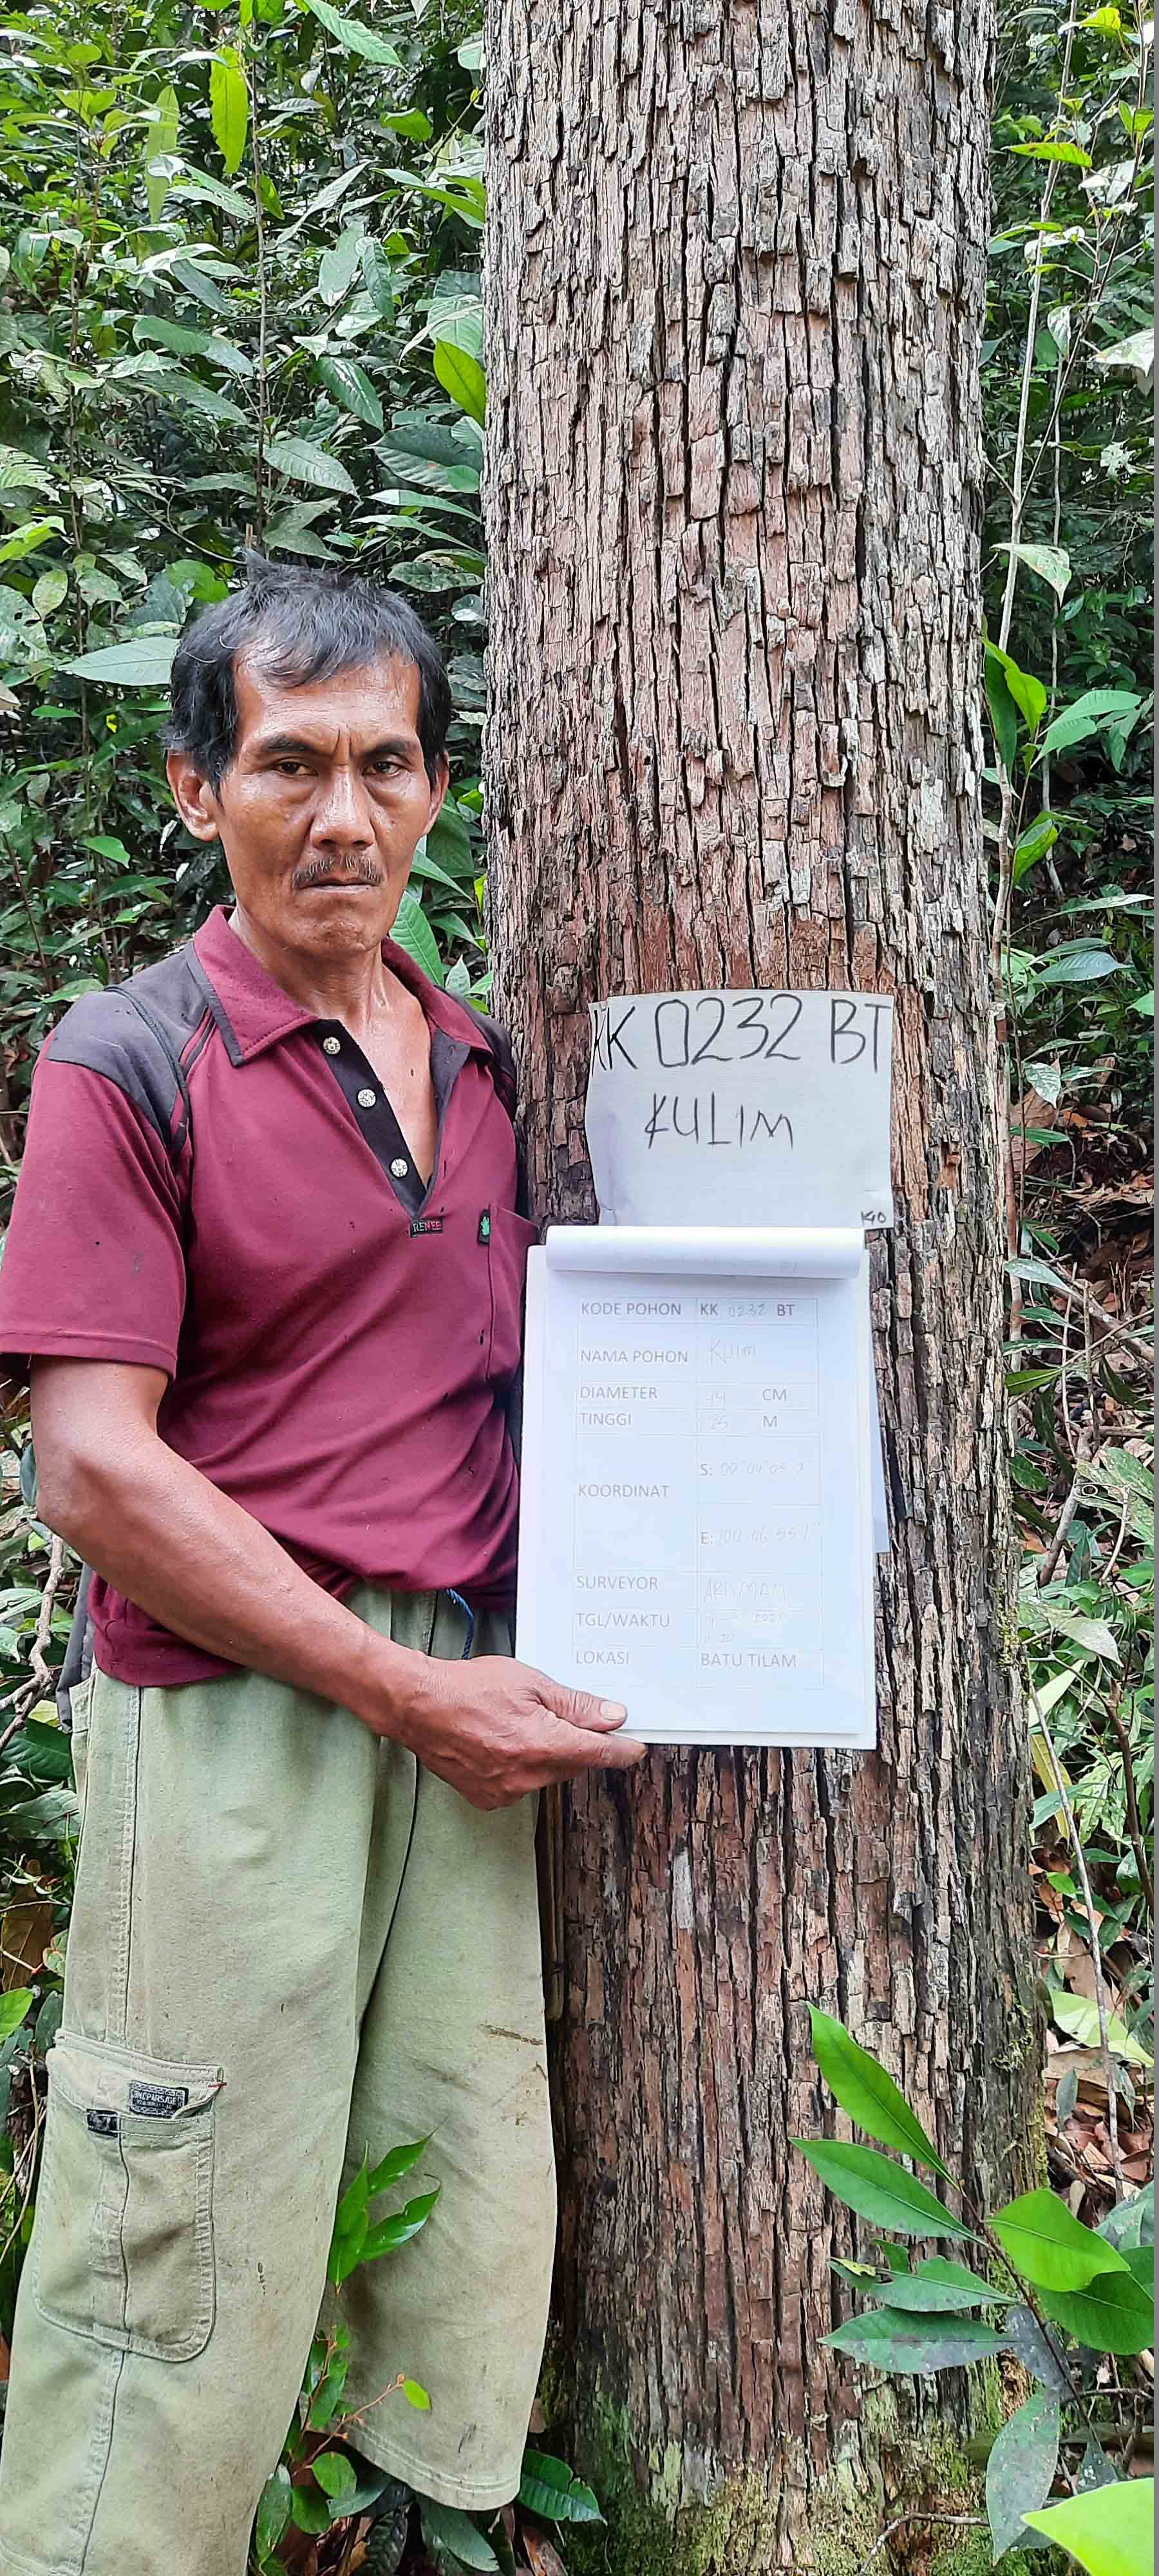 KK 0232 BT
KULIM
RENEE
KODE POHON KK 0232 BT
NAMA POHON Kulim
DIAMETER 44 CM
TINGGI 25 M
KOORDINAT
S: 00°04'05.
E: 100°46'
SURVEYOR ARISMAN
TGL/WAKTU
LOKASI BATU TILAM